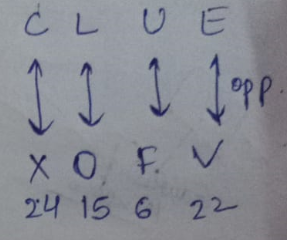 C L U E
opp.
X O F. V
24 15 6 22